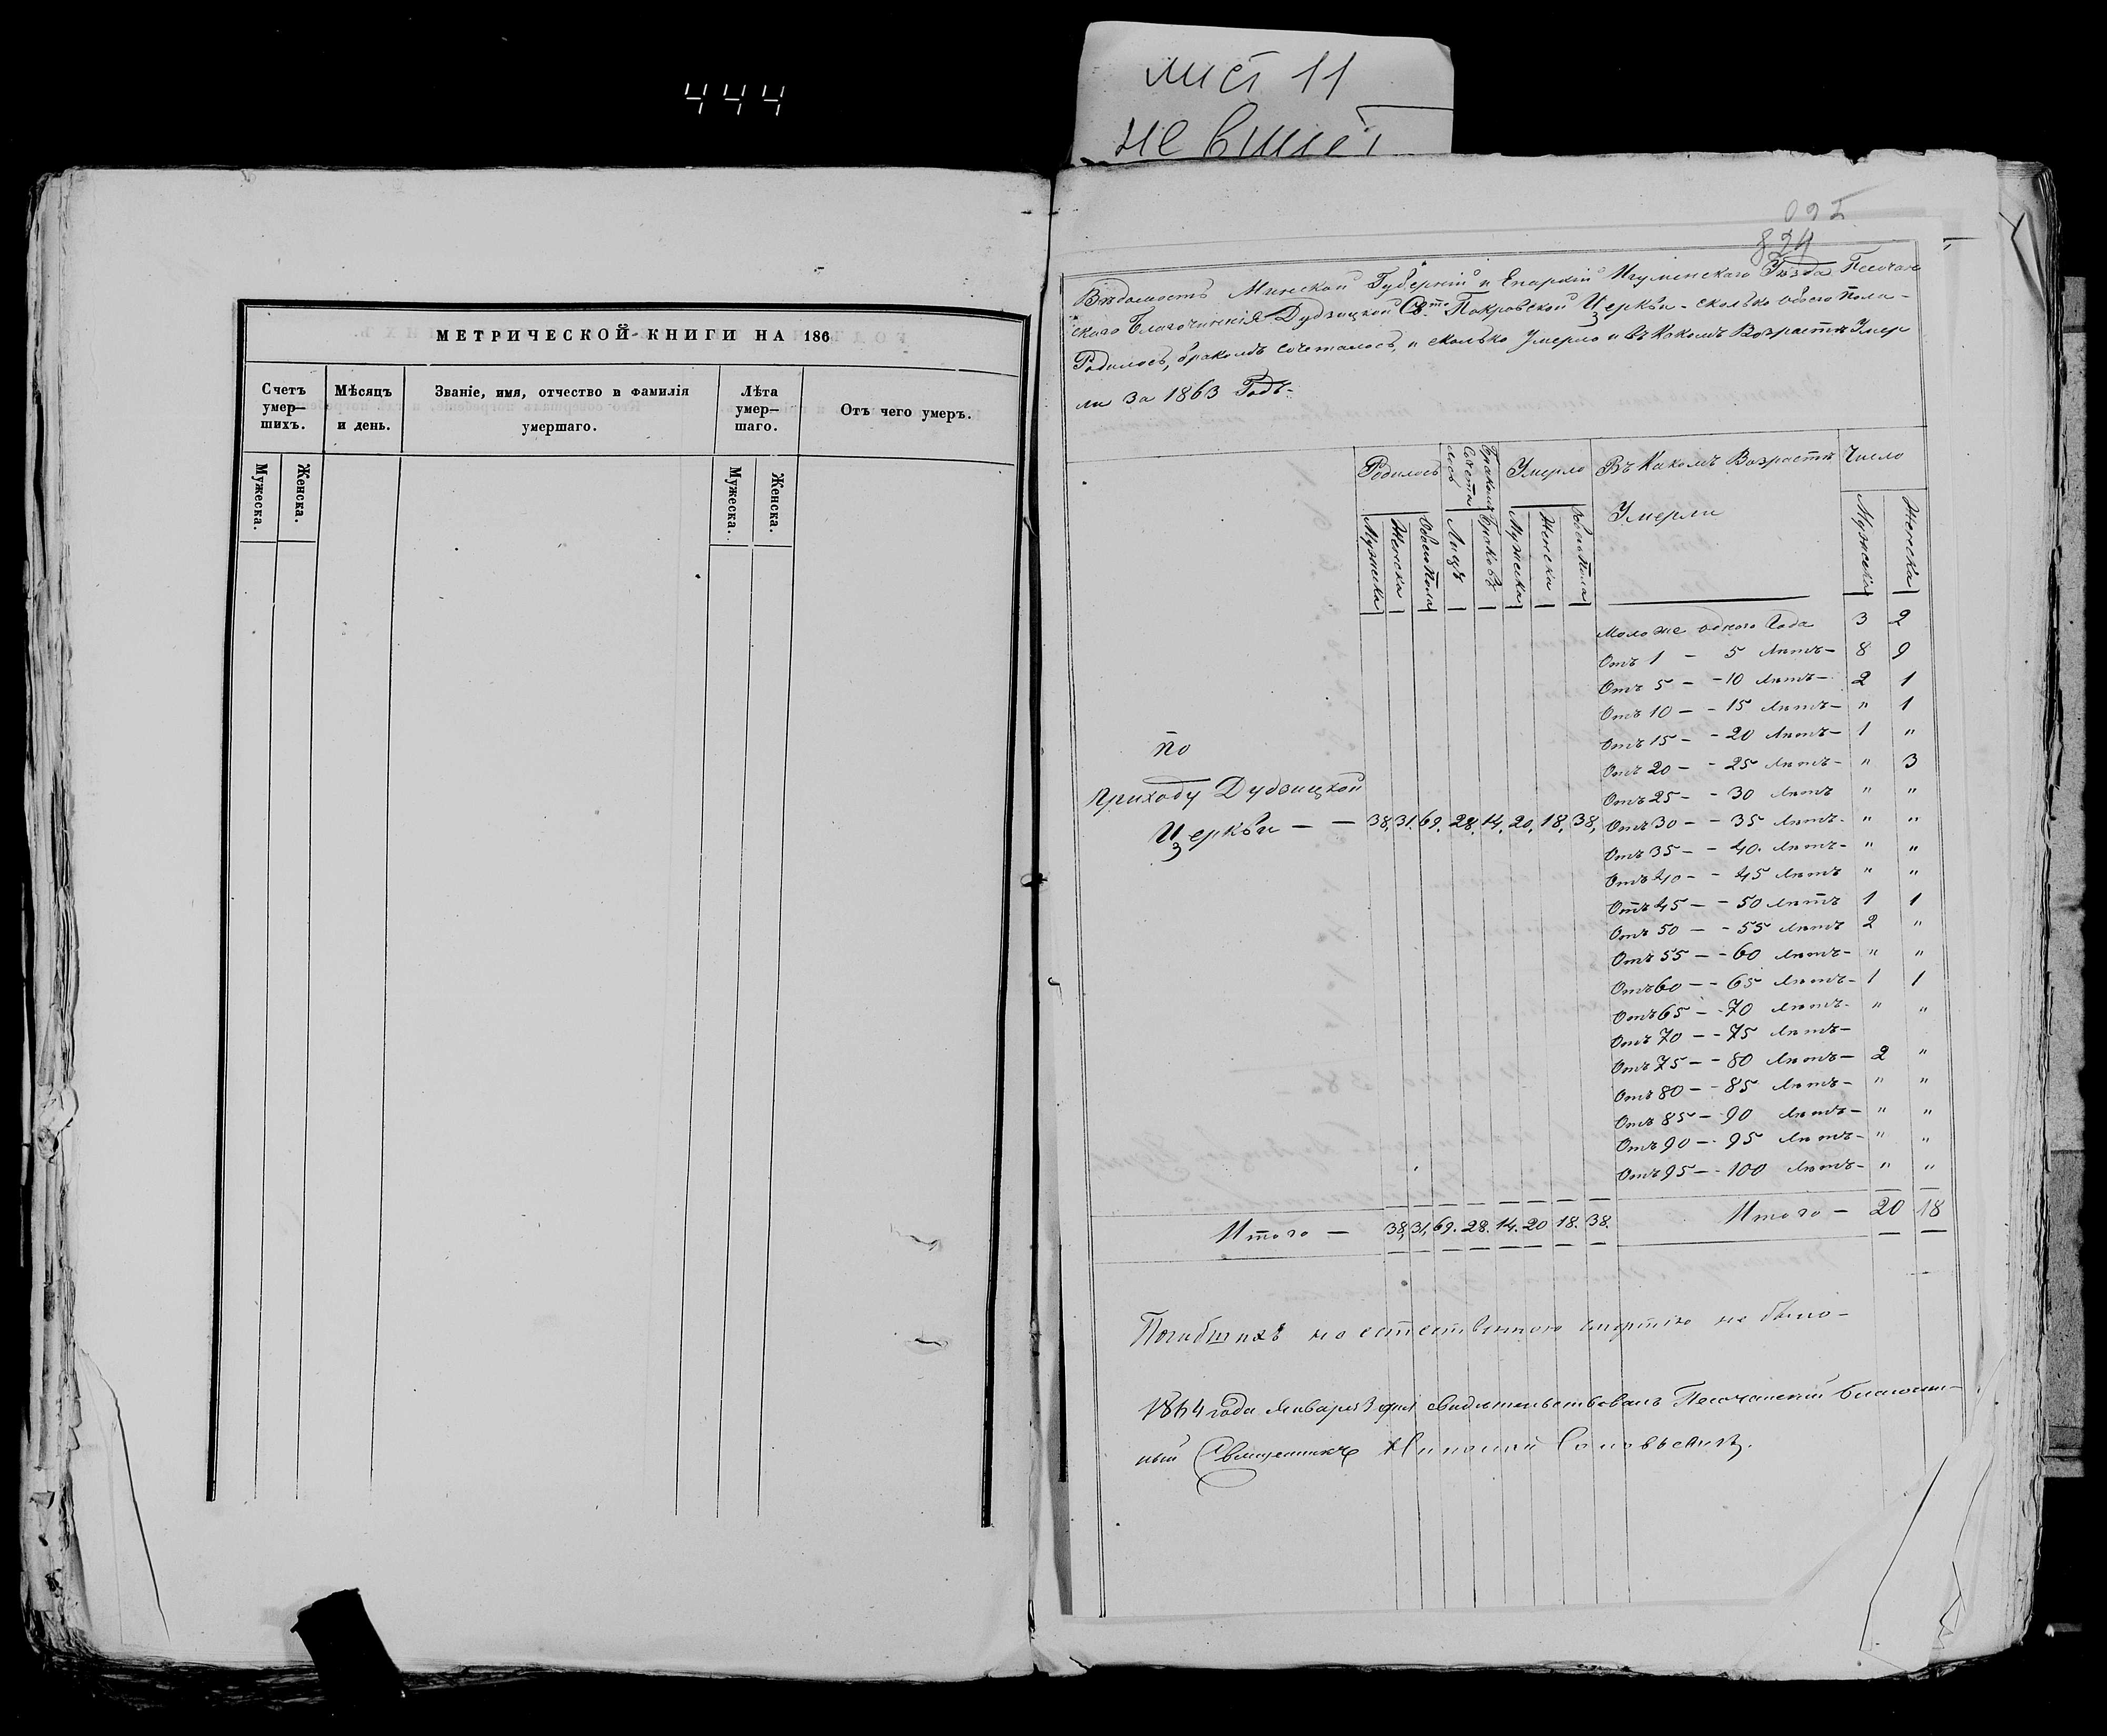 лист 11
не вшит
444
МЕТРИЧЕСКОЙ КНИГИ НА 186
Счетъ умер— шихъ.
Мѣсяцъ и день.
Званіе, имя, отчество и фамилія умершаго.
Лѣта умер— шаго.
Отъ чего умеръ.
Мужеска.
Женска.
Мужеска.
Женска.
824
Вѣдомость Минской Губерніи и Епархіи Игуменскаго Уѣзда Песочан
скаго Благочинія Дудзицкой Св. Покровской Церкви – сколько обоего пола –
Родилось, бракомъ сочеталось, и сколько Умерло и въ Какомъ Возрастѣ Умер
ли За 1863 Годъ.
Родилось
Бракомъ Сочеталось
Умерло
Въ Какомъ Возрастѣ Умерли
Число
Мужеска
Женска
Обоего Пола
Лицъ
Браковъ
Мужеска
Женска
Обоего Пола
Мужеска
Женска
Моложе одного Года 3 2
Отъ 1 – 5 Лѣтъ – 8 9
Отъ 5 – – 10 Лѣтъ – 2 1
Отъ 10 – – 15 Лѣтъ – „ 1
Отъ 15 – – 20 Лѣтъ – 1 „
Отъ 20 – – 25 Лѣтъ – „ 3
Отъ 25 – – 30 Лѣтъ „ „
по
приходу Дудзицкой
Церкви – – 38, 31. 69. 28. 14. 20, 18, 38,
Отъ 30 – – 35 Лѣтъ – „ „
Отъ 35 – – 40. Лѣтъ – „ „
Отъ 40 – – 45 Лѣтъ „ „
Отъ 45 – – 50 Лѣтъ 1 1
Отъ 50 – – 55 Лѣтъ 2 „
Отъ 55 – – 60 Лѣтъ – „ „
Отъ 60 – – 65 Лѣтъ – 1 1
Отъ 65 – – 70 Лѣтъ – „ „
Отъ 70 – – 75 Лѣтъ –
Отъ 75 – – 80 Лѣтъ – 2 „
Отъ 80 – – 85 Лѣтъ – „ „
Отъ 85 – 90 Лѣтъ – „ „
Отъ 90 – 95 Лѣтъ – „ „
Отъ 95 – – 100 Лѣтъ – „ „
Итого – 38, 31, 69. 28. 14. 20 18. 38. Итого – 20 18
Погибшихъ не естественною смертію не было –
1864 года Января 3 дня свидѣтельствовалъ Песочанскій благочин–
ный Священникъ